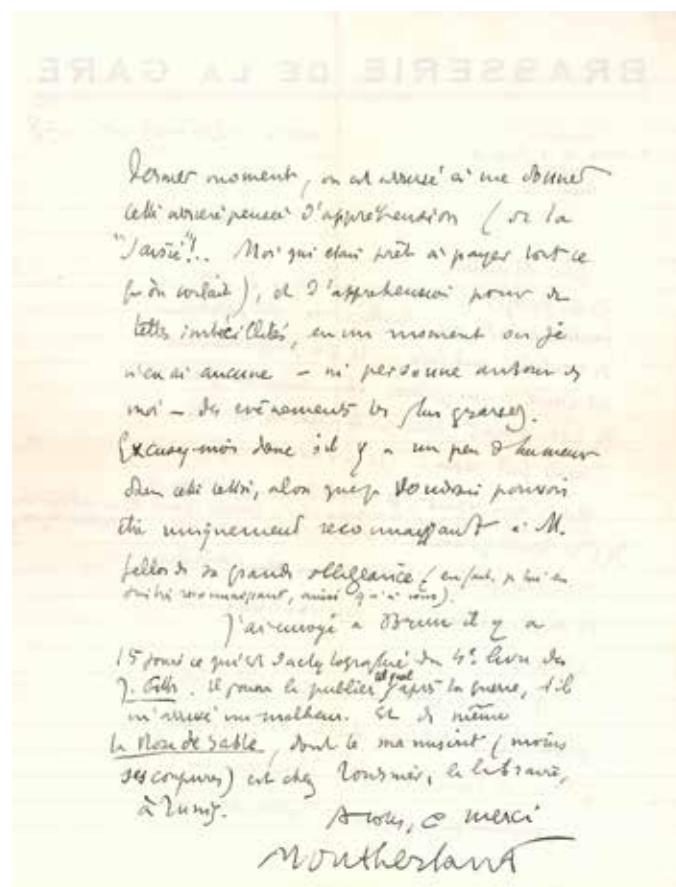 BRASSERIE DE LA GARE
dernier moment, on est arrivé à me donner
cette arrière pensée d'appréhension (de la
"saisie"!.. Moi qui étais prêt à payer tout ce
qu'on voulait), et d'appréhension pour de
telles imbécillités, en un moment où je
n'en ai aucune – ni personne autour de
moi – des événements les plus graves.
Excusez-moi donc s'il y a un peu d'humeur
dans cette lettre, alors que je voudrais pouvoir
être uniquement reconnaissant à M.
de sa grande obligeance (en fait, je lui en
reconnaissant, ainsi qu'à vous).
J'ai envoyé à Brun il y a
15 jours ce qui est dactylographié du 4e livre des
J. Filles. Il pourra le publier tel quel après la guerre, s'il
m'arrive un malheur. Et de même
la Rose de Sable, dont le manuscrit (moins
ses coupures) est chez Tournier, le libraire,
à Tunis.
A vous, et merci
Montherlant